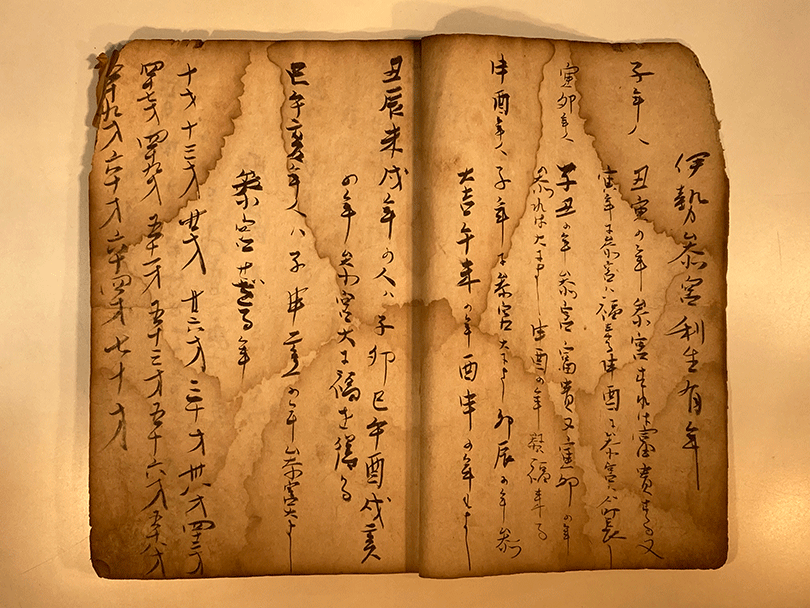 伊勢参宮利生有年
子年人 丑寅の年 参宮すれは富貴する又
寅年に参宮ハ福 申酉に参宮 命長し
寅卯年人 子丑の年 参宮富貴又寅卯の年
参れは大によし 申酉の年 福来る
申酉年人 子年に参宮大によし 卯辰の年参
大吉 午未の年 酉申の年もよし
丑辰未戌年の人ハ子卯巳午酉戌亥
の年参宮大に福を得る
巳午亥年人ハ子申亥の年参宮大よし
参宮せざる年
十才 十三才 廿才 廿六才 三十才 卅八才 四十二才
四十七才 四十九才 五十一才 五十三才 五十六才 五十八才
五十九才 六十才 六十四才 七十才